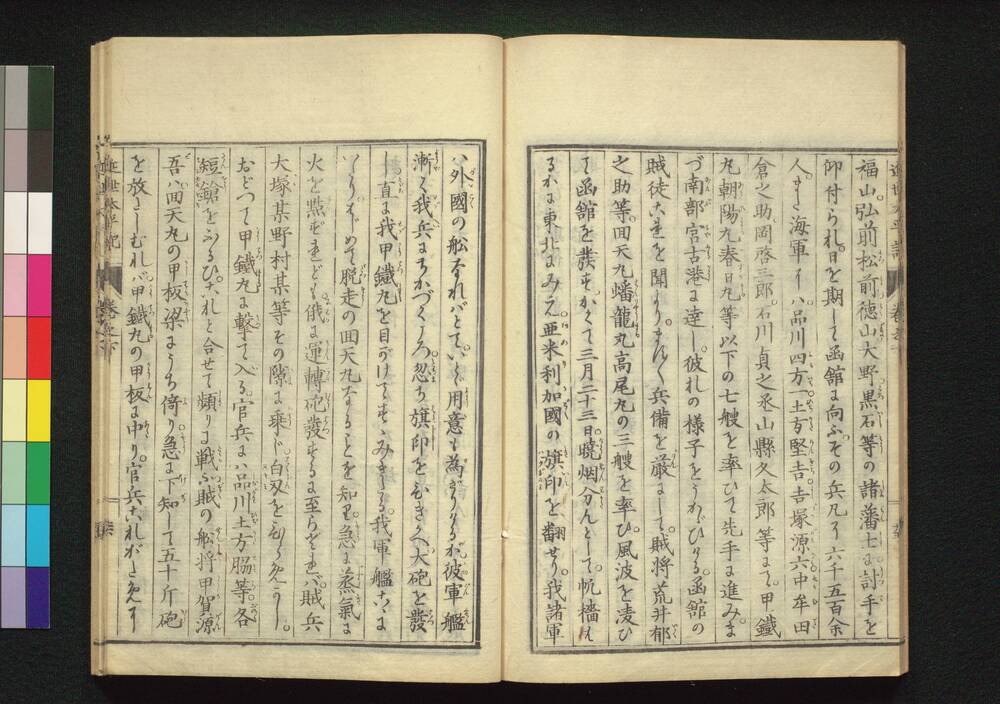 福山。弘前松前徳山大野黒石等の諸藩士に討手を
仰付られ。日を期して函舘に向ふ。その兵凡そ六千五百余
人。また海軍にハ品川四方一。土方堅吉。吉塚源六。中牟田
倉之助。岡啓三郎。石川貞之丞。山縣久太郎等まで。甲鐵
丸朝陽丸春日丸等以下の七艘を率ひて先手に進み。ま
づ南部宮古港に達し。彼れの様子をうかゞひける。函舘の
賊徒これを聞より。まさ〳〵兵備を厳にして。賊将荒井郁
之助等。回天丸蟠龍丸高尾丸の三艘を率ひ。風波を凌ひ
て函舘を発す。かくて三月二十三日。暁烟分んとして。帆檣は
るかに東北にみえ亜米利加國の旗印を翻せり。我諸軍
ハ外國の舩なれバとて。いまだ用意も為ざりけるが彼軍艦
漸く我兵にちかづくころ。忽ち旗印をひきかへ大砲を發
し直に我甲鐵丸を目がけてすゝみきたる。我軍艦こゝに
いたりはじめて脱走の回天丸なることを知り。急に蒸氣に
火を點ずれども俄に運轉砲發するに至らざれバ。賊兵
大塚某野村某等その隙に乗じ。白刄をひらめかし。
おどつて甲鐵丸に撃て入る。官兵にハ品川土方脇等。各
短鎗をふるひ。これと合せて頻りに戦ふ。賊の舩将甲賀源
吾ハ回天丸の甲板梁にうち倚り。急に下知して五十斤砲
を放たしむれバ甲鐵丸の甲板に中り。官兵これがために